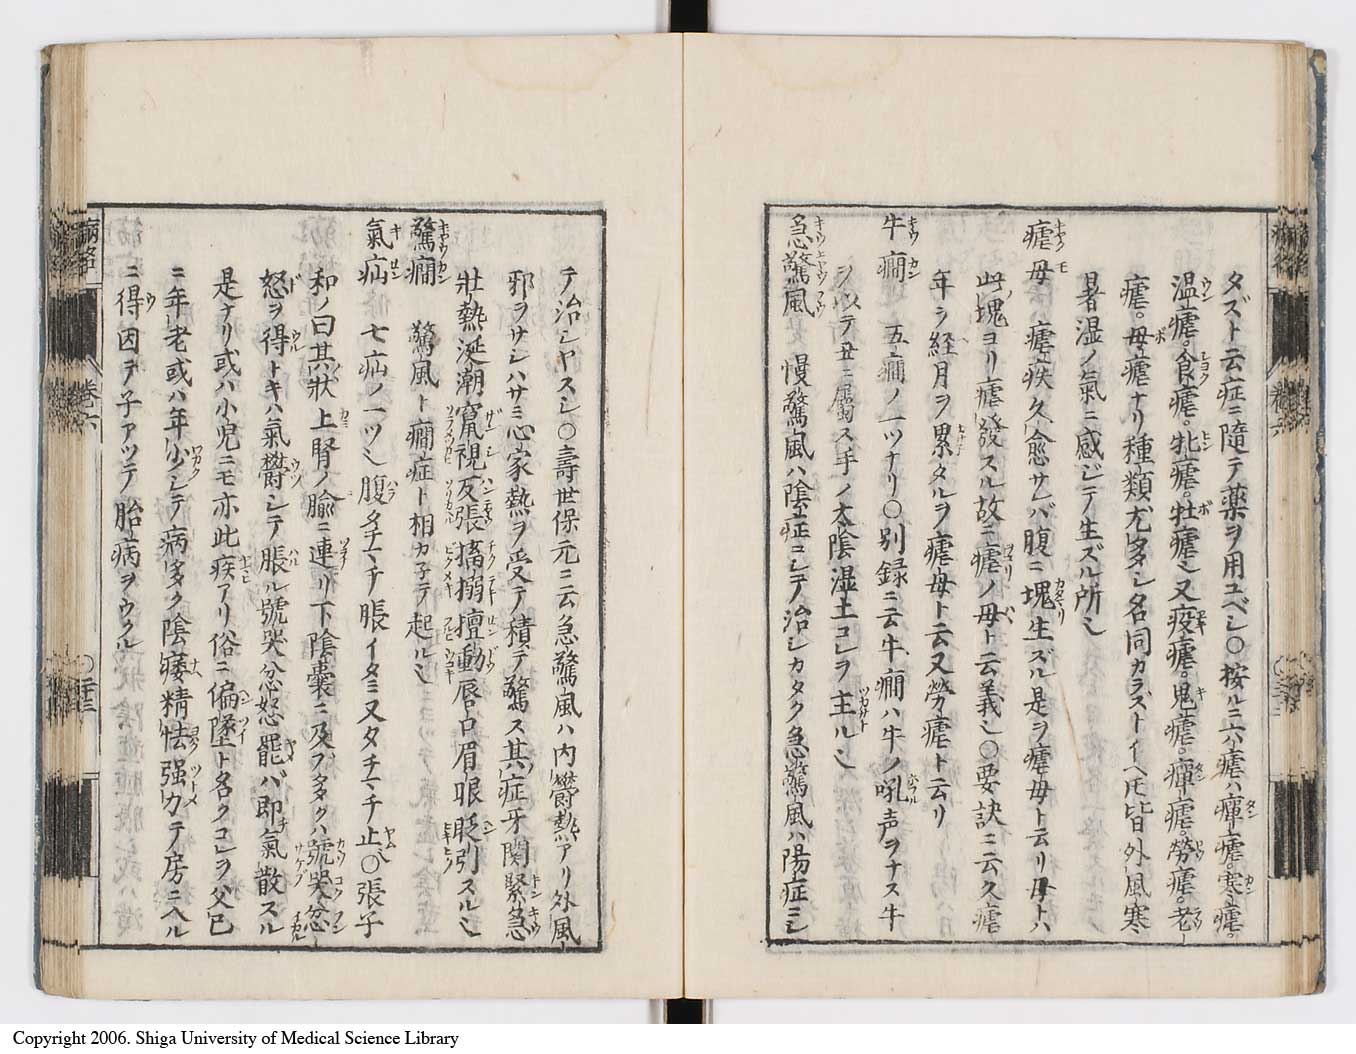 タズト云症ニ隨テ薬ヲ用ユベシ〇按ルニ六瘧ハ癉瘧。寒瘧。
温瘧。食瘧。牝瘧。牡瘧也又疫瘧。鬼瘧。瘴瘧。勞瘧。老
瘧。母瘧ナリ種類尤多シ名同カラズトイヘ𪜈皆外風寒
暑湿ノ氣ニ感ジテ生ズル所也
瘧母 瘧疾久愈サレバ腹ニ塊生ズル是ヲ瘧母ト云リ母トハ
此塊ヨリ瘧發スル故ニ瘧ノ母ト云義也〇要訣ニ云久瘧
年ヲ経月ヲ累タルヲ瘧母ト云又勞瘧ト云リ
牛癇 五癇ノ一ツナリ〇別録ニ云牛癇ハ牛ノ吼声ヲナス牛
シテ丑ニ属ス手ノ太陰湿土コレヲ主ル也
急驚風 慢驚風ハ陰症ニシテ治シカタク急驚風ハ陽症ニシ
テ治シヤスシ〇壽世保元ニ云急驚風ハ内欝熱アリ外風
邪ヲサシハサミ心家熱ヲ受テ積テ驚ス其症牙関緊急
壮熱涎潮竄視反張搐搦擅動唇口眉眼眨引スル也
驚癇 驚風ト癇症ト相カ子テ起ル也
氣疝 七疝ノ一ツ也腹タチマチ脹イタミ又タチマチ止ム〇張子
和ノ曰其状上腎ノ腧ニ連リ下陰嚢ニ及フ多クハ號哭忿
怒ヲ得トキハ氣欝シテ脹ル號哭忿怒罷バ即氣散スル
是ナリ或ハ小児ニモ亦此疾アリ俗ニ偏墜ト名クコレヲ父已
ニ年老或ハ年少シテ病多ク陰痿精怯强カテ房ニ入ル
ニ得因テ子アツテ胎病ヲウクル
巻六
〇二十三